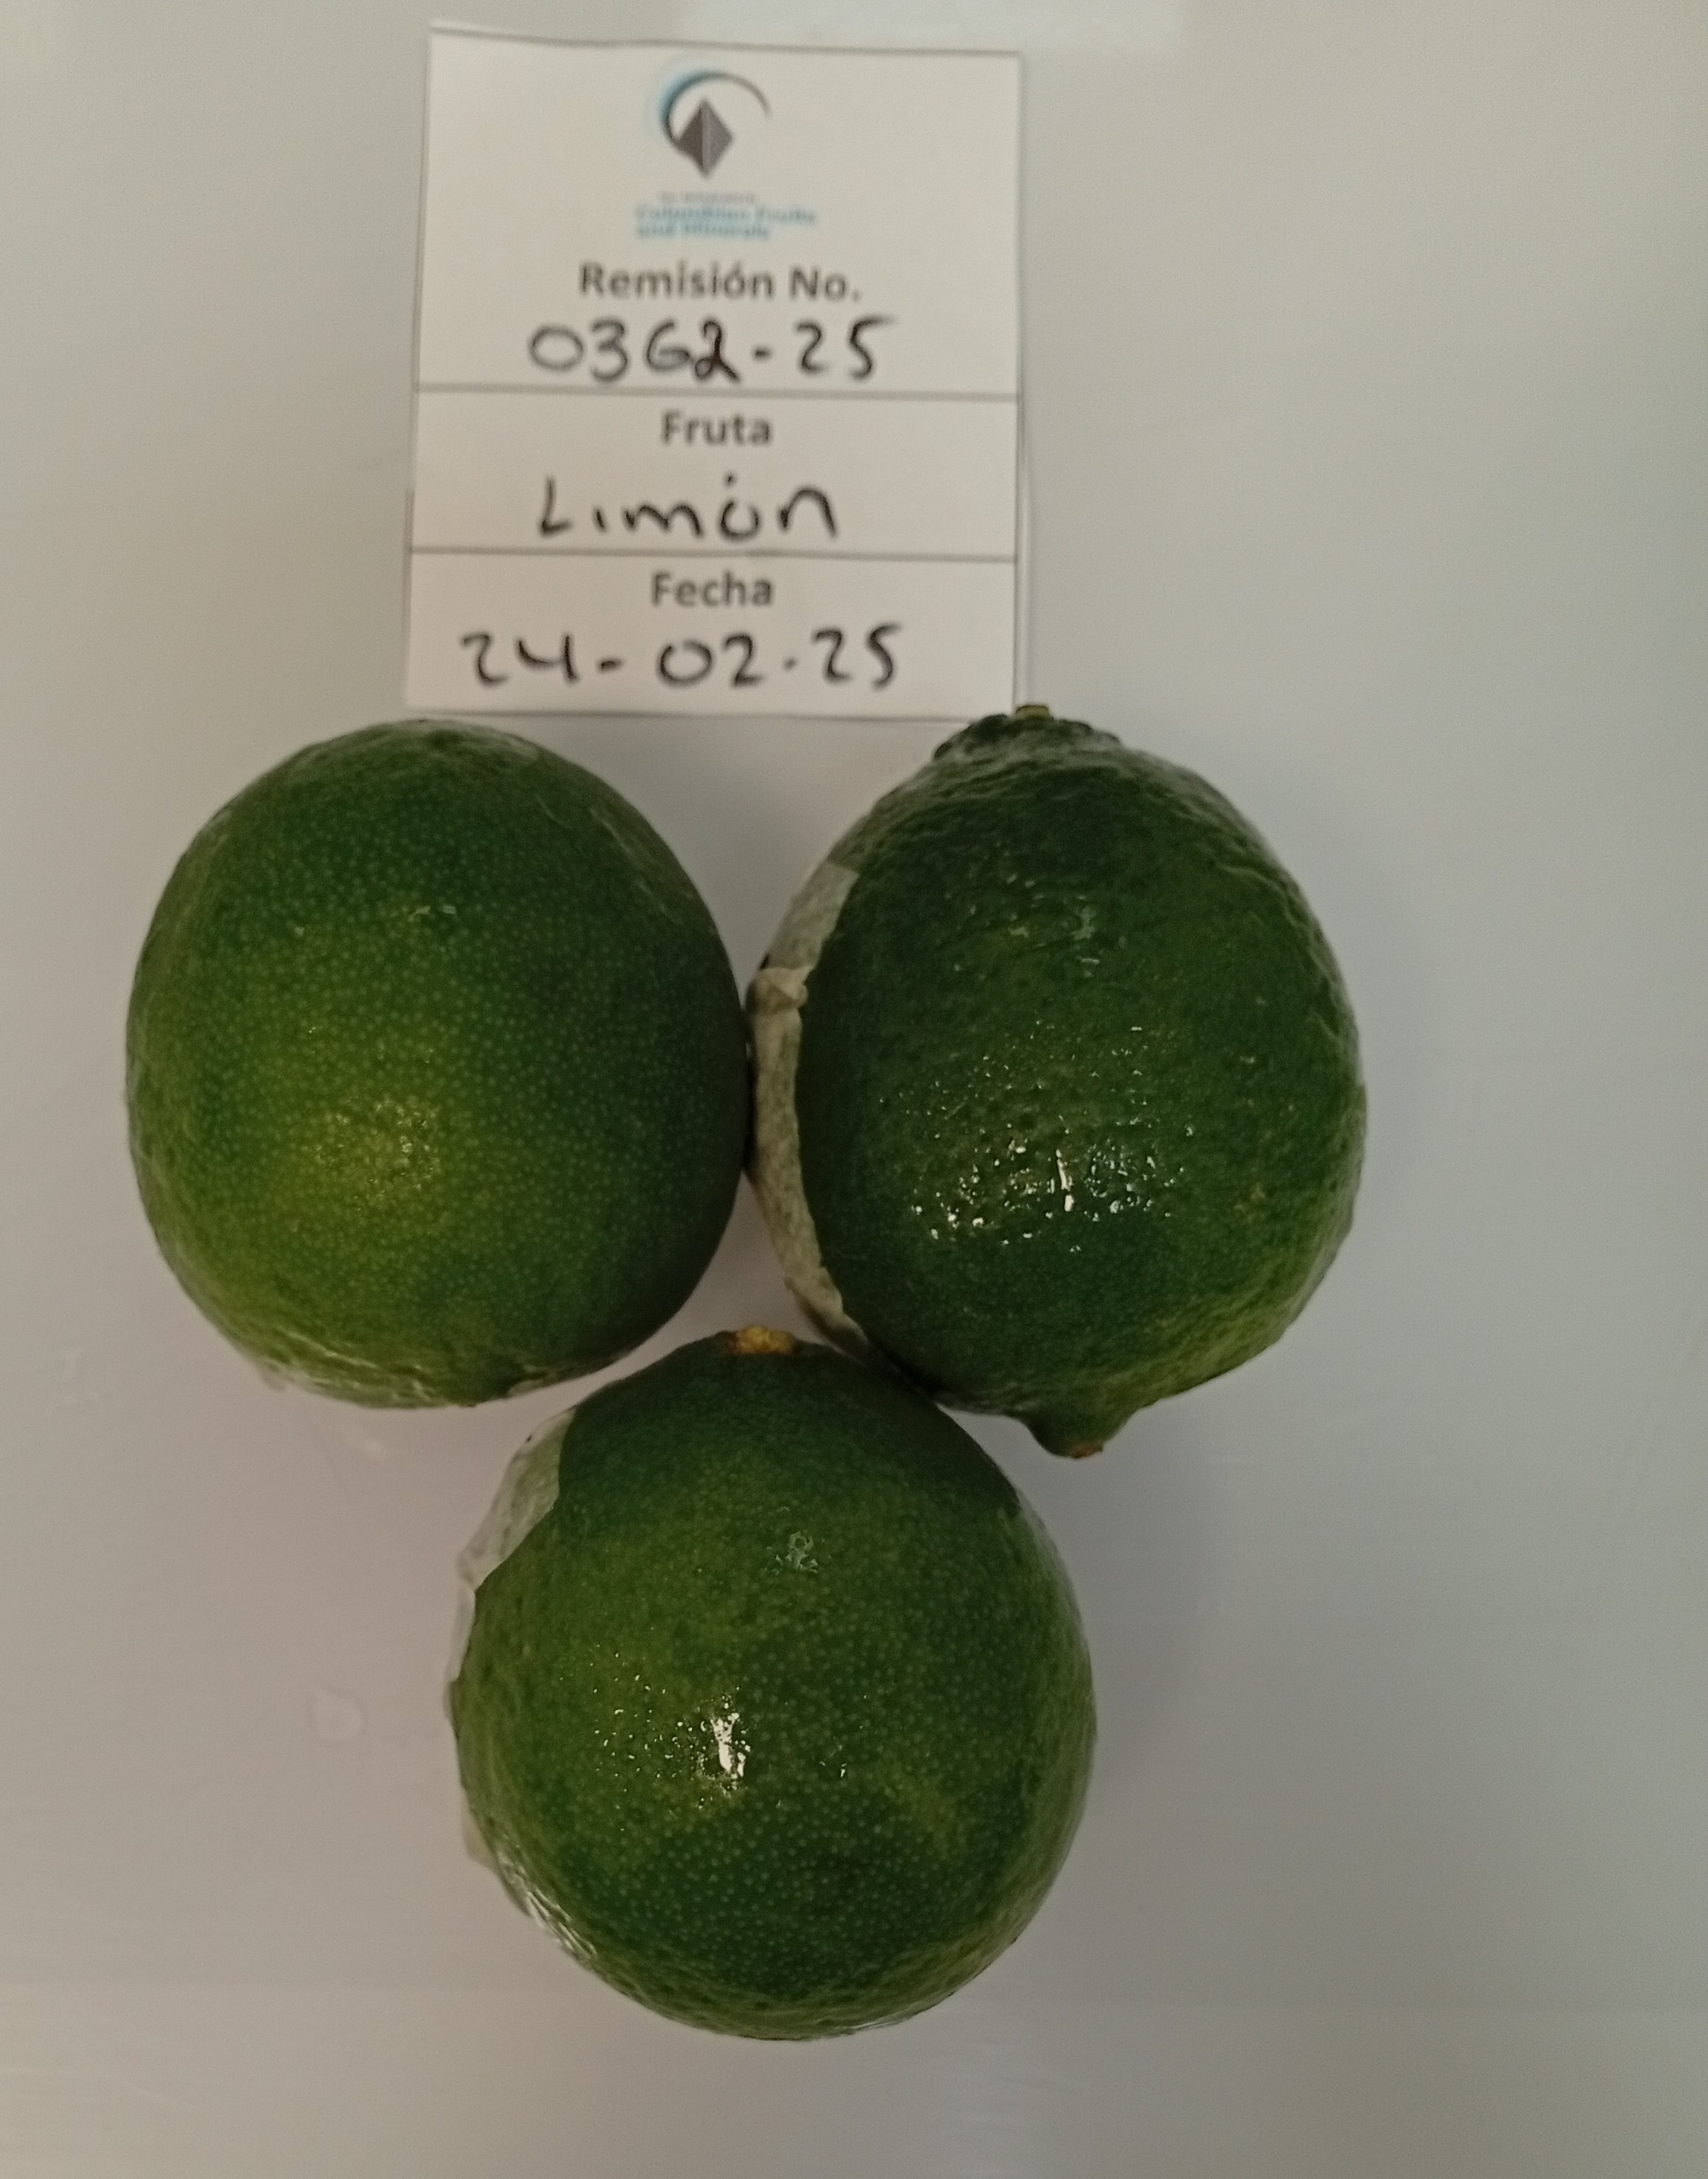 Colombian Fruits
and Minerals
Remisión No.
0362-25
Fruta
Limón
Fecha
24-02-25